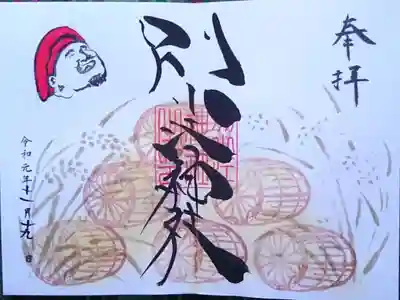 奉拝
別小江神社
令和元年十一月十九日